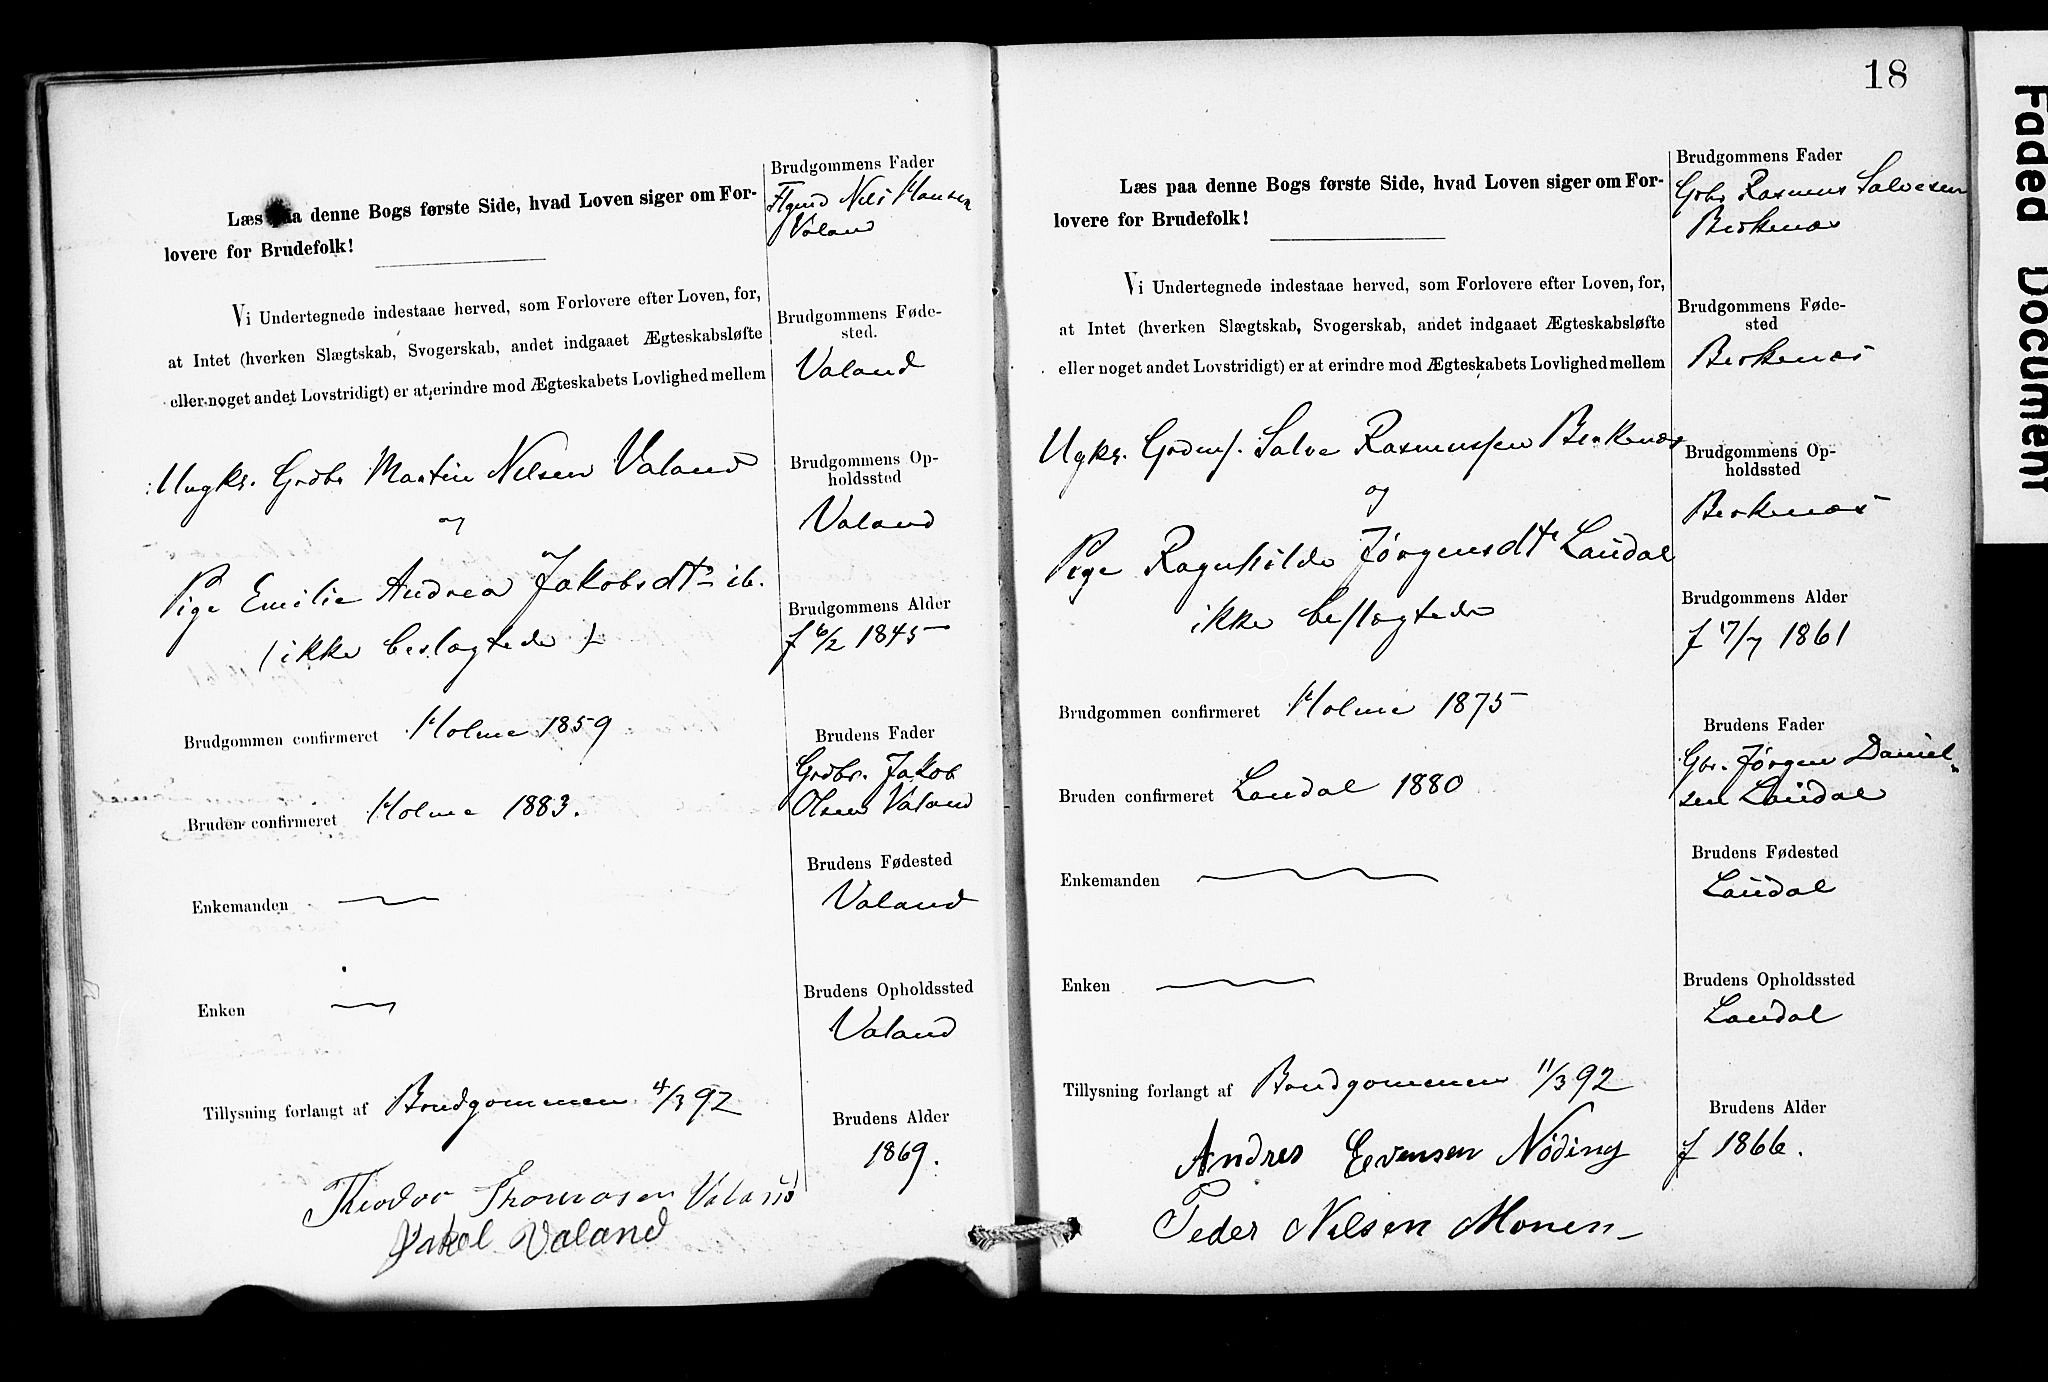 Læs paa denne Bogs første Side, hvad Loven siger om For-
lovere for Brudefolk!
Vi Undertegnede indestaae herved, som Forlovere efter Loven, for,
at Intet (hverken Slægtskab, Svogerskab, andet indgaaet Ægteskabsløfte
eller noget andet Lovstridigt) er at erindre mod Ægteskabets Lovlighed mellem
Ungkr. Grdbr Martin Nilsen Valand
og
Pige Emilie Andrea Jakobsdtr ib.
(ikke beslægtede)
Brudgommen confirmeret Holme 1859
Bruden confirmeret Holme 1883.
Enkemanden
Enken
Tillysning forlangt af Brudgommen 4/3 92
Theodor Thomasen Valand
Jakob Valand
Brudgommens Fader
Nils Hansen
Valand
Brudgommens Føde-
sted.
Valand
Brudgommens Op-
holdssted
Valand
Brudgommens Alder
f 6/2 1845
Brudens Fader
Grdbr. Jakob
Olsen Valand
Brudens Fødested
Valand
Brudens Opholdssted
Valand
Brudens Alder
1869.
18
Læs paa denne Bogs første Side, hvad Loven siger om For-
lovere for Brudefolk!
Vi Undertegnede indestaae herved, som Forlovere efter Loven, for,
at Intet (hverken Slægtskab, Svogerskab, andet indgaaet Ægteskabsløfte
eller noget andet Lovstridigt) er at erindre mod Ægteskabets Lovlighed mellem
Ugkr. Grdmf. Salve Rasmussen Birkenæs
og
Pige Ragnhilde Jørgensdtr Laudal
ikke beslægtede
Brudgommen confirmeret Holme 1875
Bruden confirmeret Laudal 1880
Enkemanden
Enken
Tillysning forlangt af Brudgommen 11/3 92
Andres Evensen Nøding
Peder Nilsen Monen
Brudgommens Fader
Grbr Rasmus Salvesen
Birkenæs
Brudgommens Føde-
sted
Birkenæs
Brudgommens Op-
holdssted
Birkenæs
Brudgommens Alder
f 17/7 1861
Brudens Fader
Gbr. Jørgen Daniel-
sen Laudal
Brudens Fødested
Laudal
Brudens Opholdssted
Laudal
Brudens Alder
f 1866.
Faded Document